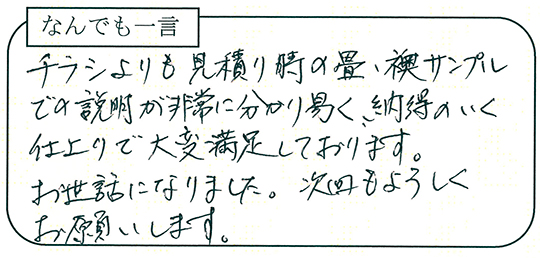 なんでも一言
チラシよりも見積り時の畳、襖サンプル
での説明が非常に分かり易く、納得のいく
仕上りで大変満足しております。
お世話になりました。次回もよろしく
お願いします。